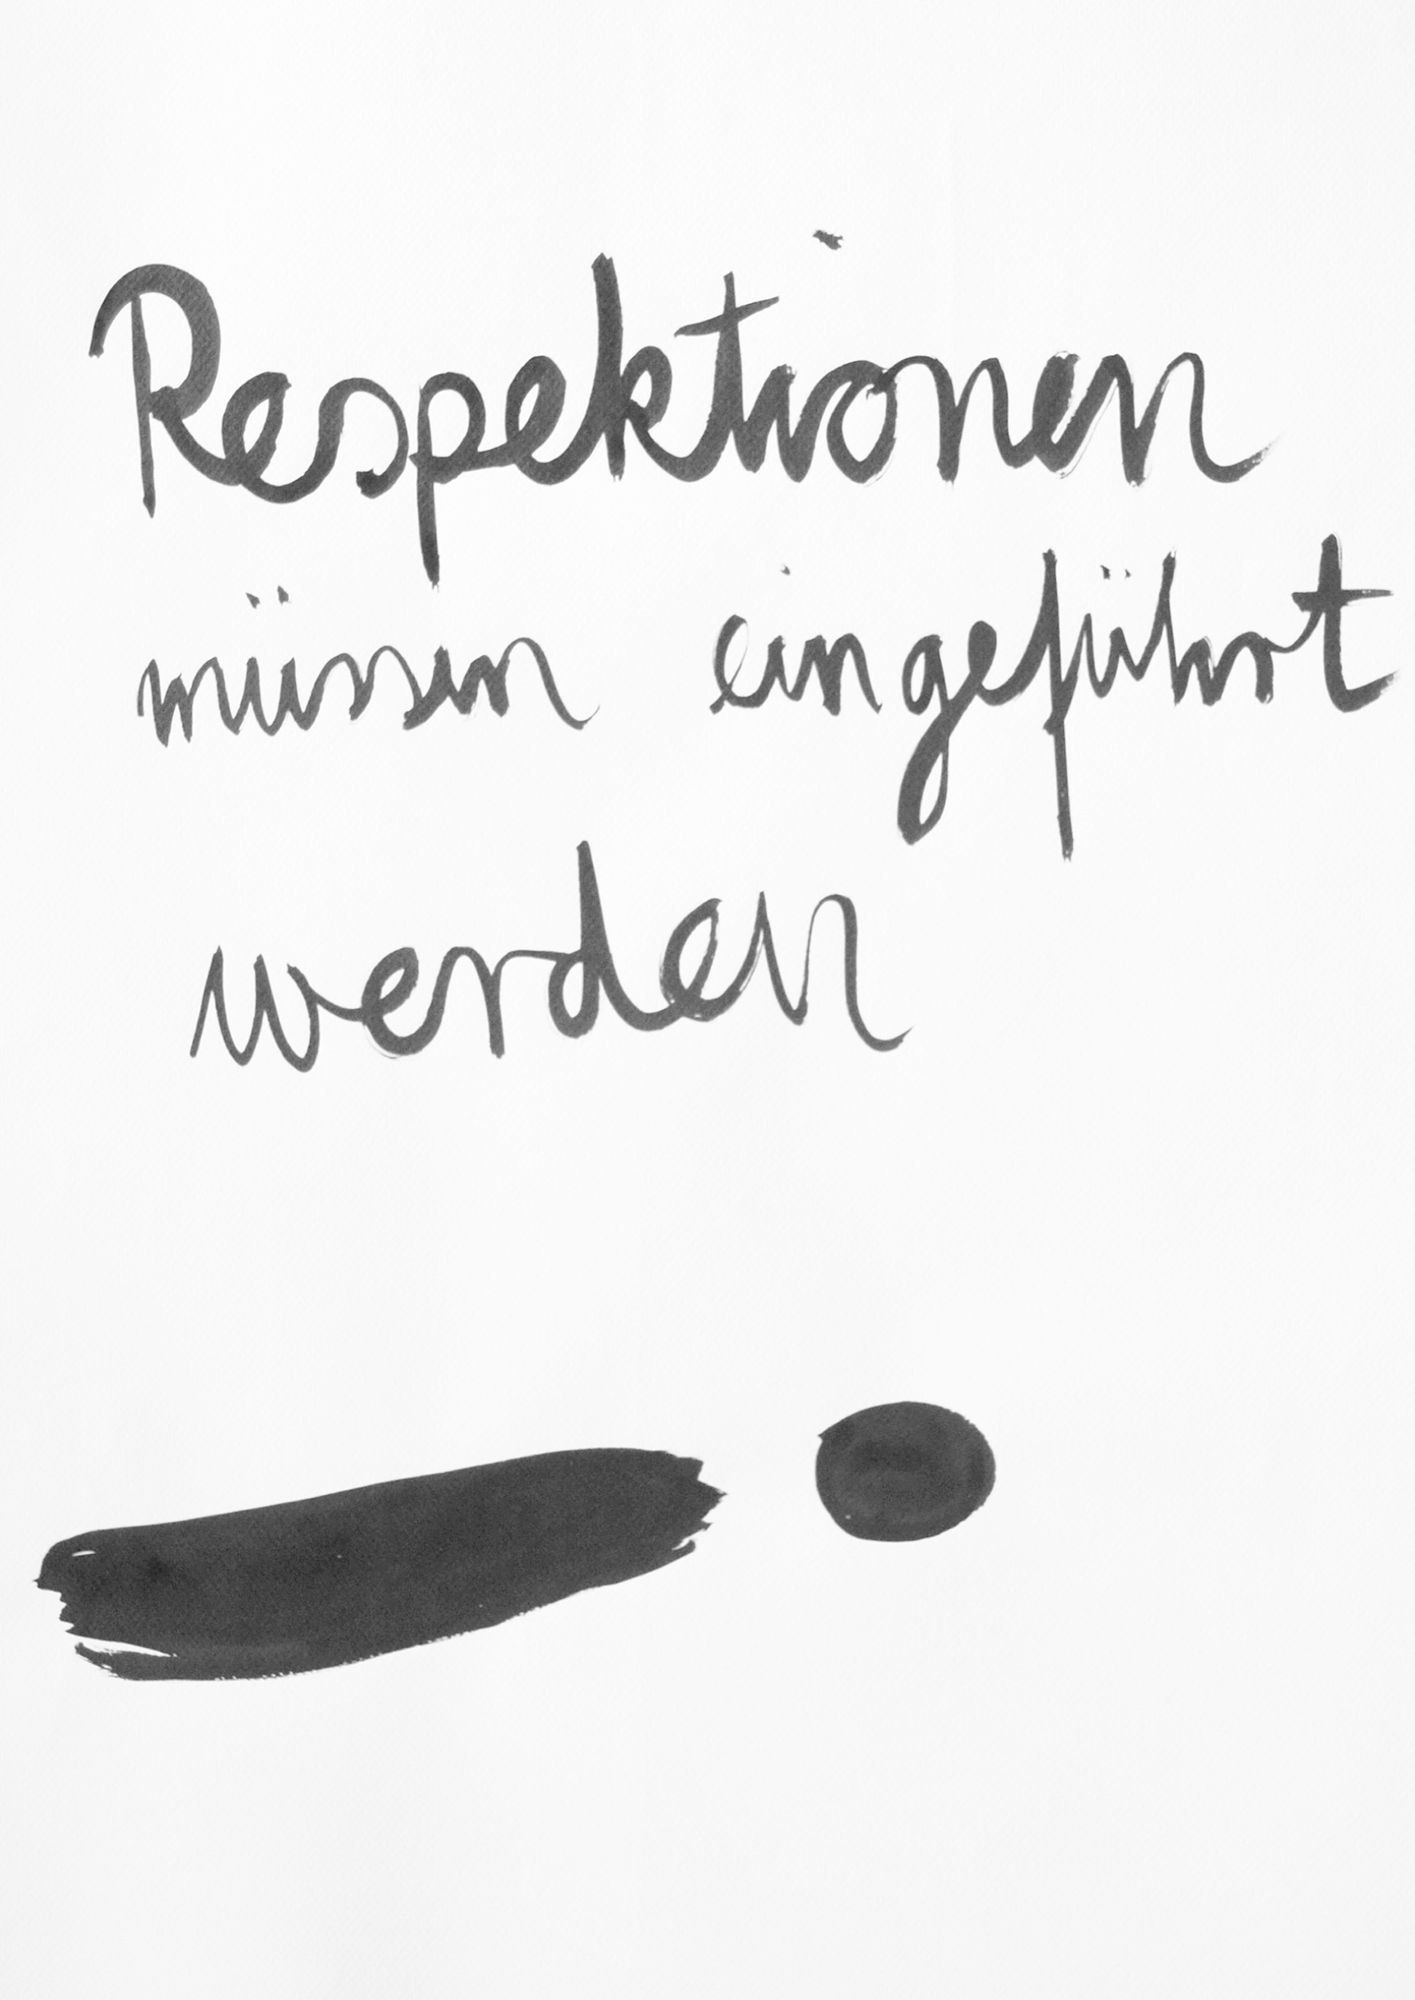 Respektionen
müssen eingeführt
werden